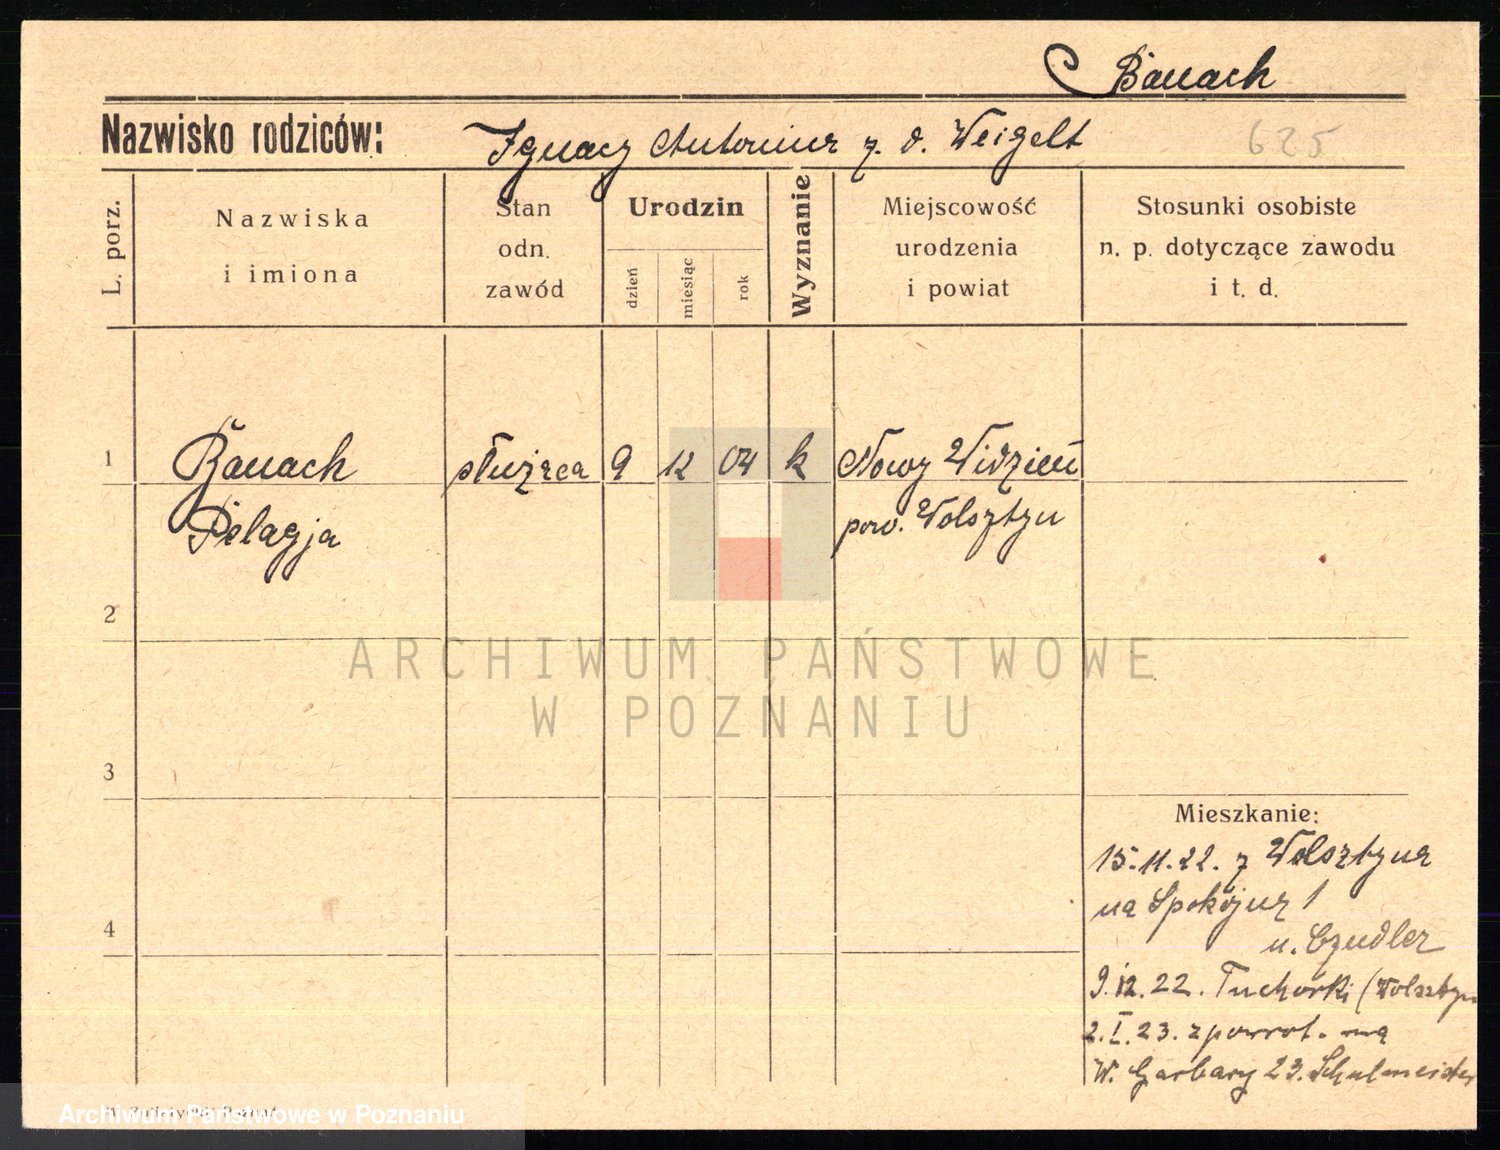 Banach
Nazwisko rodziców: Ignacy Antonina z. d. Weigelt 625
L. porz.
Nazwiska i imiona
Stan odn. zawód
Urodzin
dzień
miesiąc
rok
Wyznanie
Miejscowość urodzenia i powiat
Stosunki osobiste n. p. dotyczące zawodu i t. d.
1 Banach służąca 9 12 04 k Nowy Widzień
Pelagja pow. Wolsztyn
2
ARCHIWUM PAŃSTWOWE
W POZNANIU
3
Mieszkanie:
15.11.22. z Wolsztyna
na Spokojną 1
4
u. Czudler
9.12.22. Tuchorki (Wolsztyn
2.I.23. zpowrot. na
W. Garbary 23. Schulmeister
Archiwum Państwowe w Poznaniu